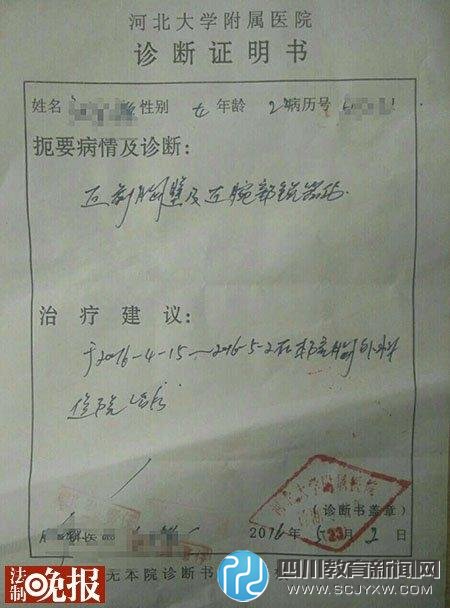 河北大学附属医院
诊断证明书
姓名 性别 女 年龄 2 病历号
扼要病情及诊断：
胸壁及左腕部锐器伤
治疗建议：
于2016-4-15～2016-5-2在本院胸外科
住院治疗
河北大学附属医院
（诊断书盖章）
科医
2016年5月2日
无本院诊断书
法制晚报
四川教育新闻网
WWW.SCJYXW.COM